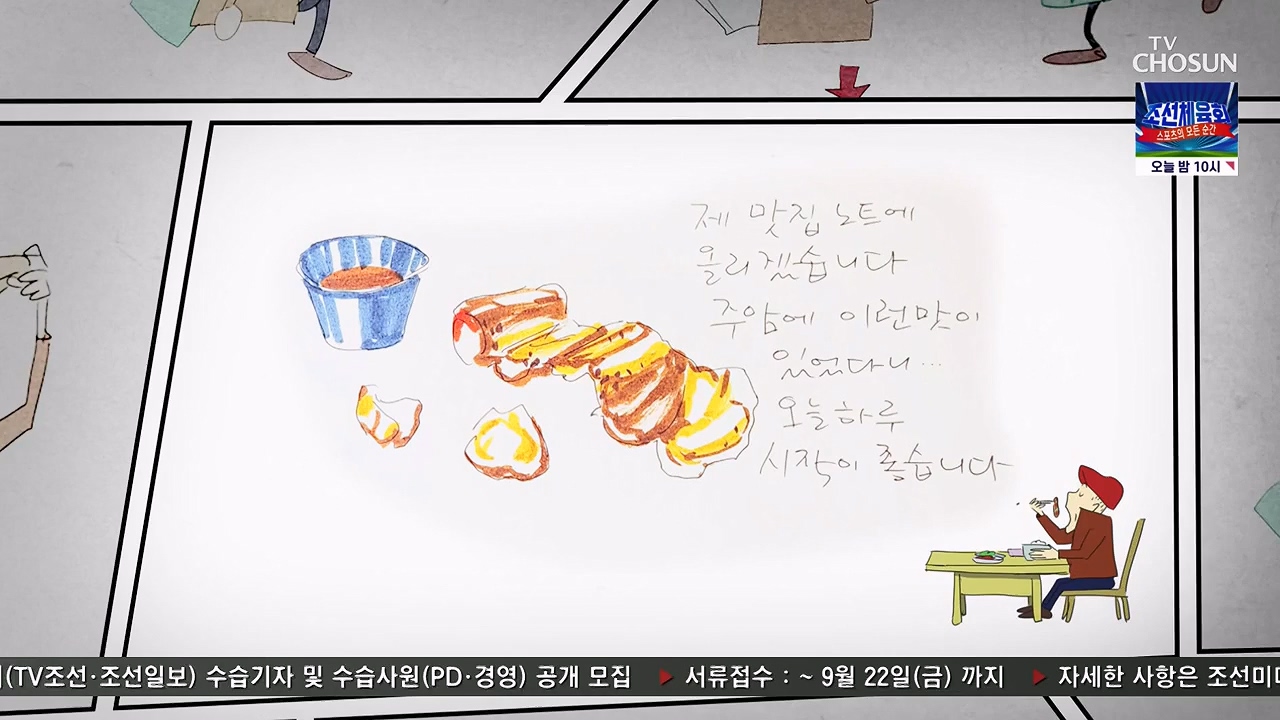 TV
CHOSUN
조선체육회
스포츠의 모든 순간
오늘 밤 10시
제 맛집 노트에
올리겠습니다
주암에 이런맛이
있었다니...
오늘하루
시작이 좋습니다
(TV조선·조선일보) 수습기자 및 수습사원(PD·경영) 공개 모집 ▶ 서류접수 : ~ 9월 22일(금) 까지 ▶ 자세한 사항은 조선미디